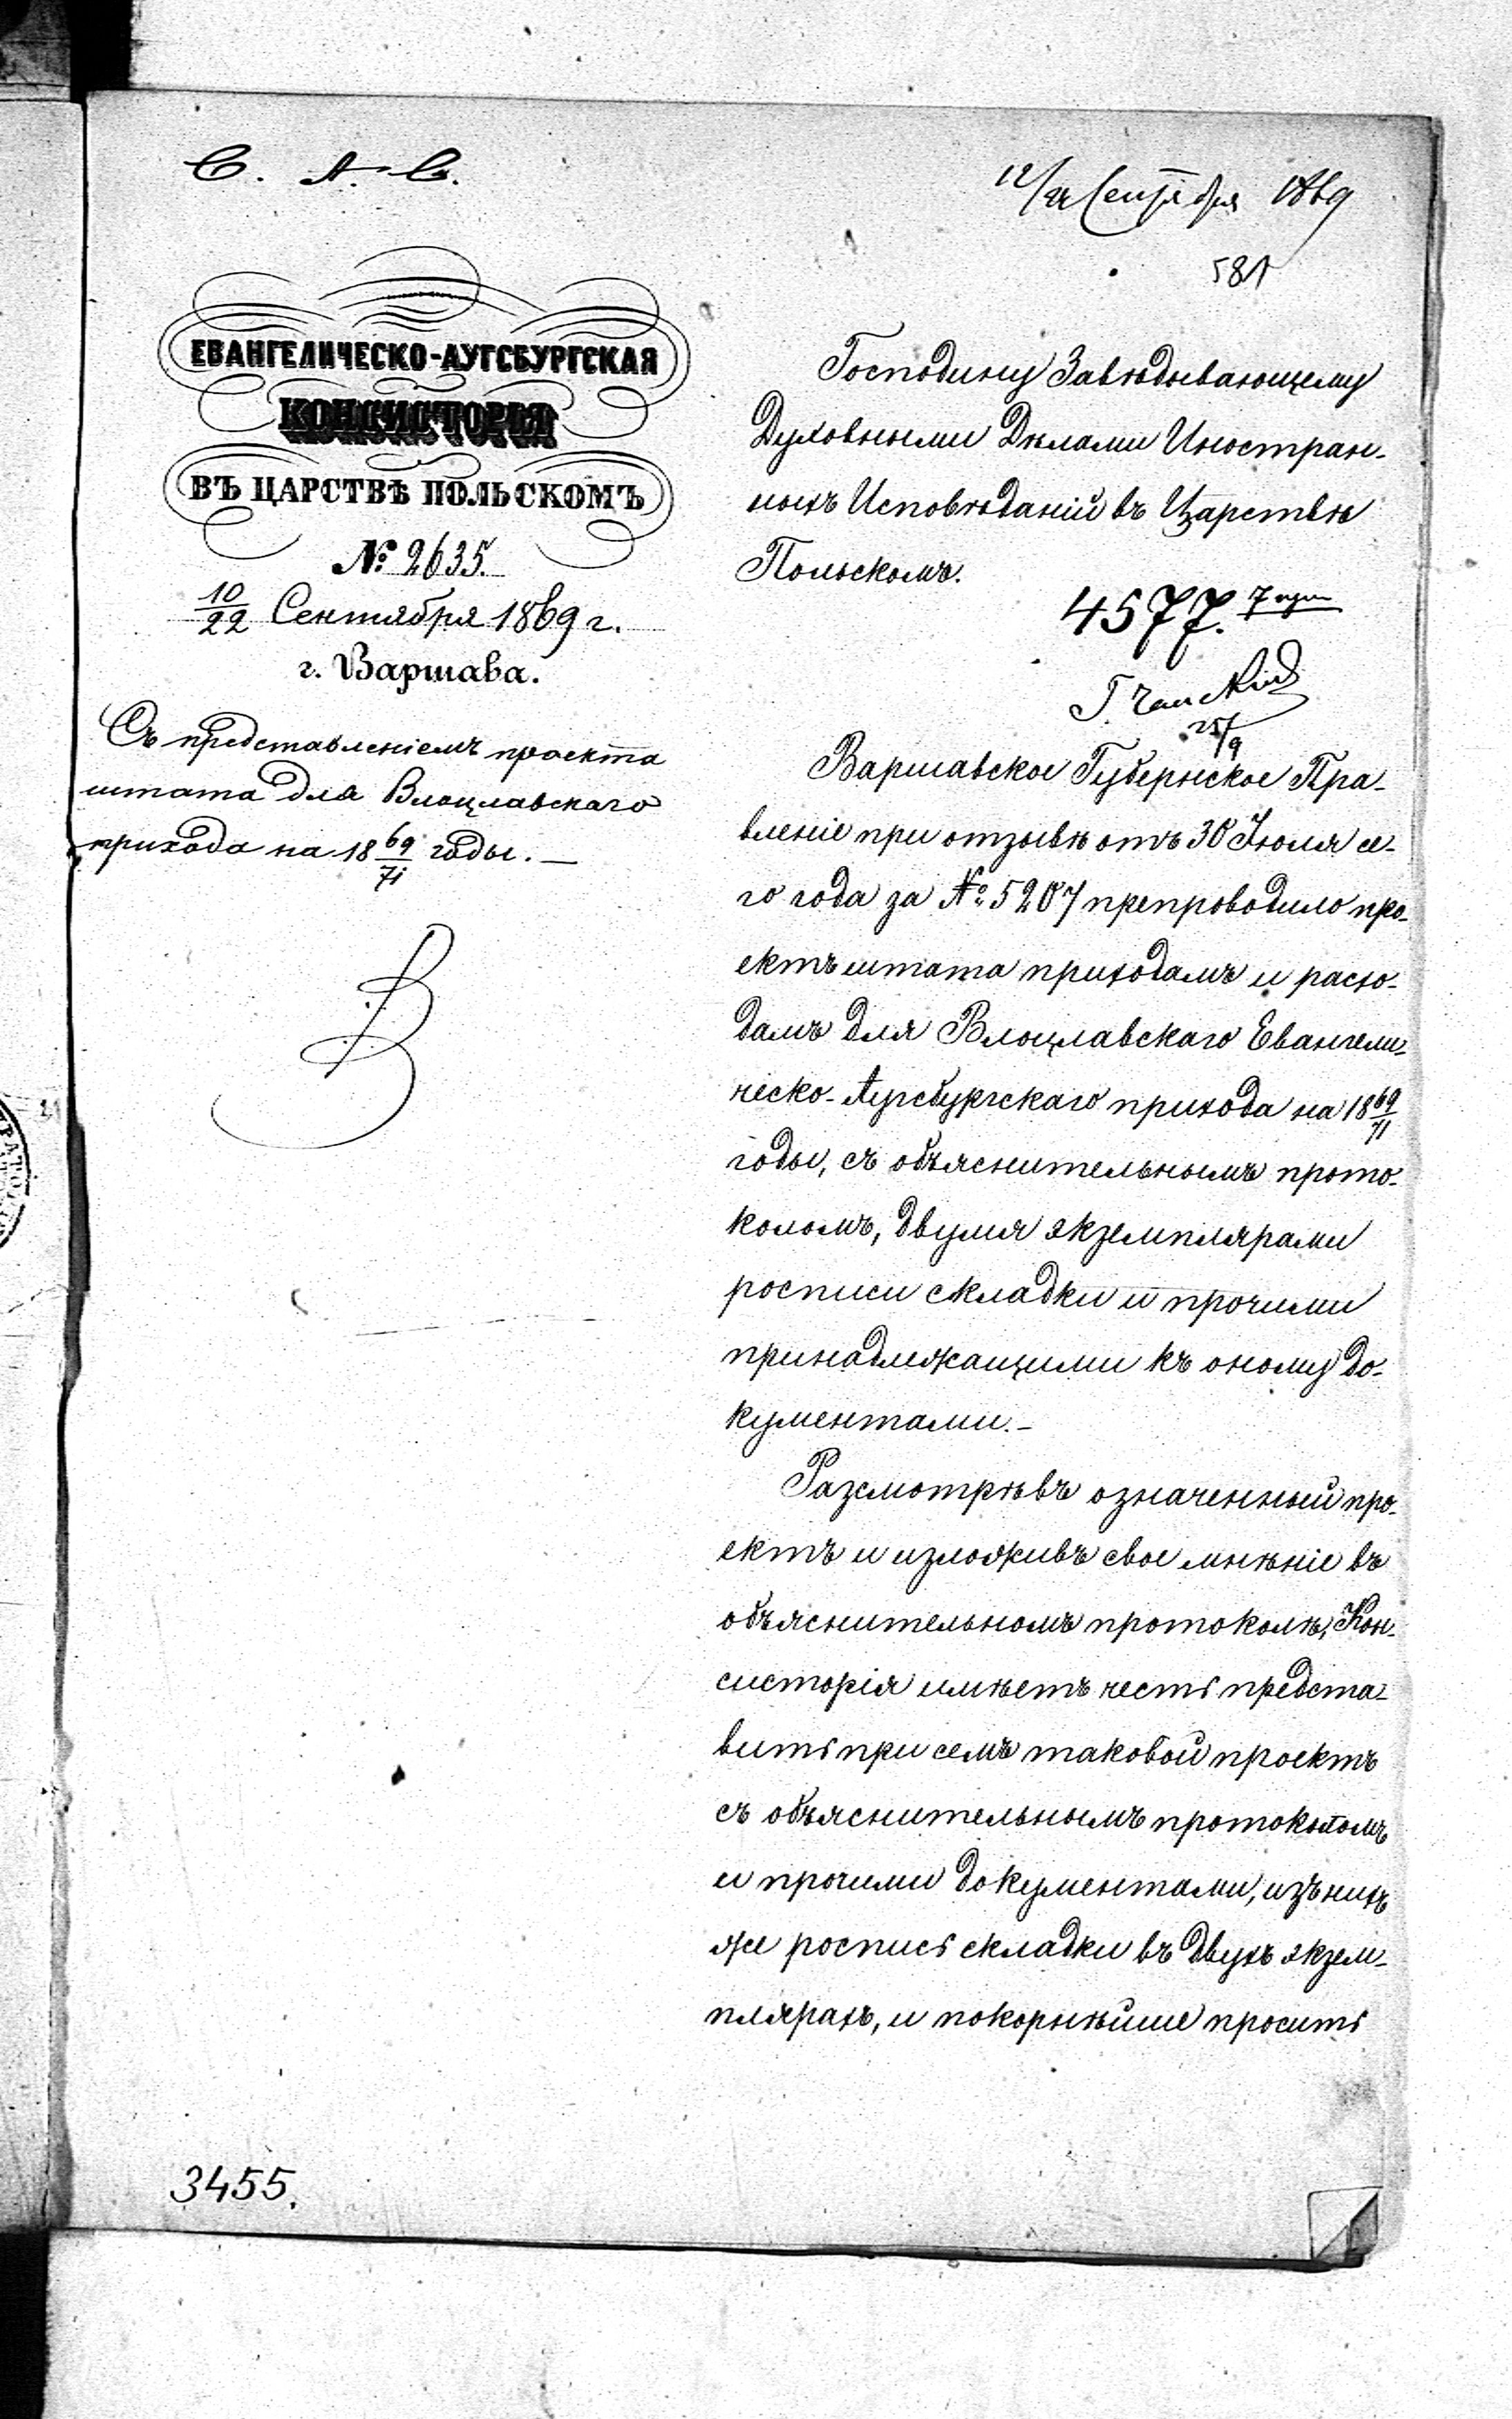 С. А. В.
12/24 Сентября 1869
581
ЕВАНГЕЛИЧЕСКО-АУГСБУРГСКАЯ
КОНСИСТОРІЯ
ВЪ ЦАРСТВѢ ПОЛЬСКОМЪ
№ 2635.
10/22 Сентября 1869 г.
г. Варшава.
Съ представленіемъ проекта
штата для Влоцлавскаго
прихода на 18 69/71 годы. —
Господину Завѣдывающему
Духовными Дѣлами Иностран-
ныхъ Исповѣданій въ Царствѣ
Польскомъ.
4577.
25/9
Варшавское Губернское Пра-
вленіе при отзывѣ отъ 30 Іюля се-
го года за № 5207 препроводило про-
ектъ штата приходамъ и расхо-
дамъ для Влоцлавскаго Евангели-
ческо-Аугсбургскаго прихода на 18 69/71
годы, съ объяснительнымъ прото-
коломъ, двумя экземплярами
росписи складки и прочими
принадлежащими къ оному до-
кументами. —
Разсмотрѣвъ означенный про-
ектъ и изложивъ свое мнѣніе въ
объяснительномъ протоколѣ, Кон-
систорія имѣетъ честь предста-
вить при семъ таковой проектъ
съ объяснительнымъ протоколомъ
и прочими документами, изъ нихъ
же роспись складки въ двухъ экзем-
плярахъ, и покорнѣйше просить
3455.